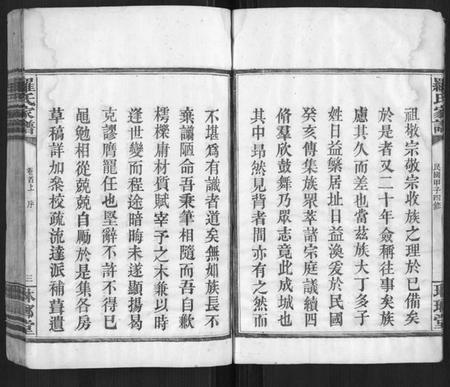 羅氏家譜
民國甲子四修
祖敬宗敬宗收族之理於已備矣
於是者又二十年僉稱往事矣族
慮其久而差也當茲族大丁多子
姓日益繁居址日益渙爰於民國
癸亥傳集族眾萃議宗庭議續四
脩羣欣鼓舞乃眾志竟此成城也
其中昂然見背者間亦有之然而
不堪為有識者道矣無如族長不
棄謭陋命吾秉筆相隨而吾自歉
樗櫟庸材質賦宰予之木兼以時
逢世變而程途暗晦未遂顯揚曷
克謬膺寵任也堅辭不許不得已
黽勉相從兢兢自勵於是集各房
草稿詳加叅校疏流達派補葺遺
羅氏家譜
卷首上 序
三